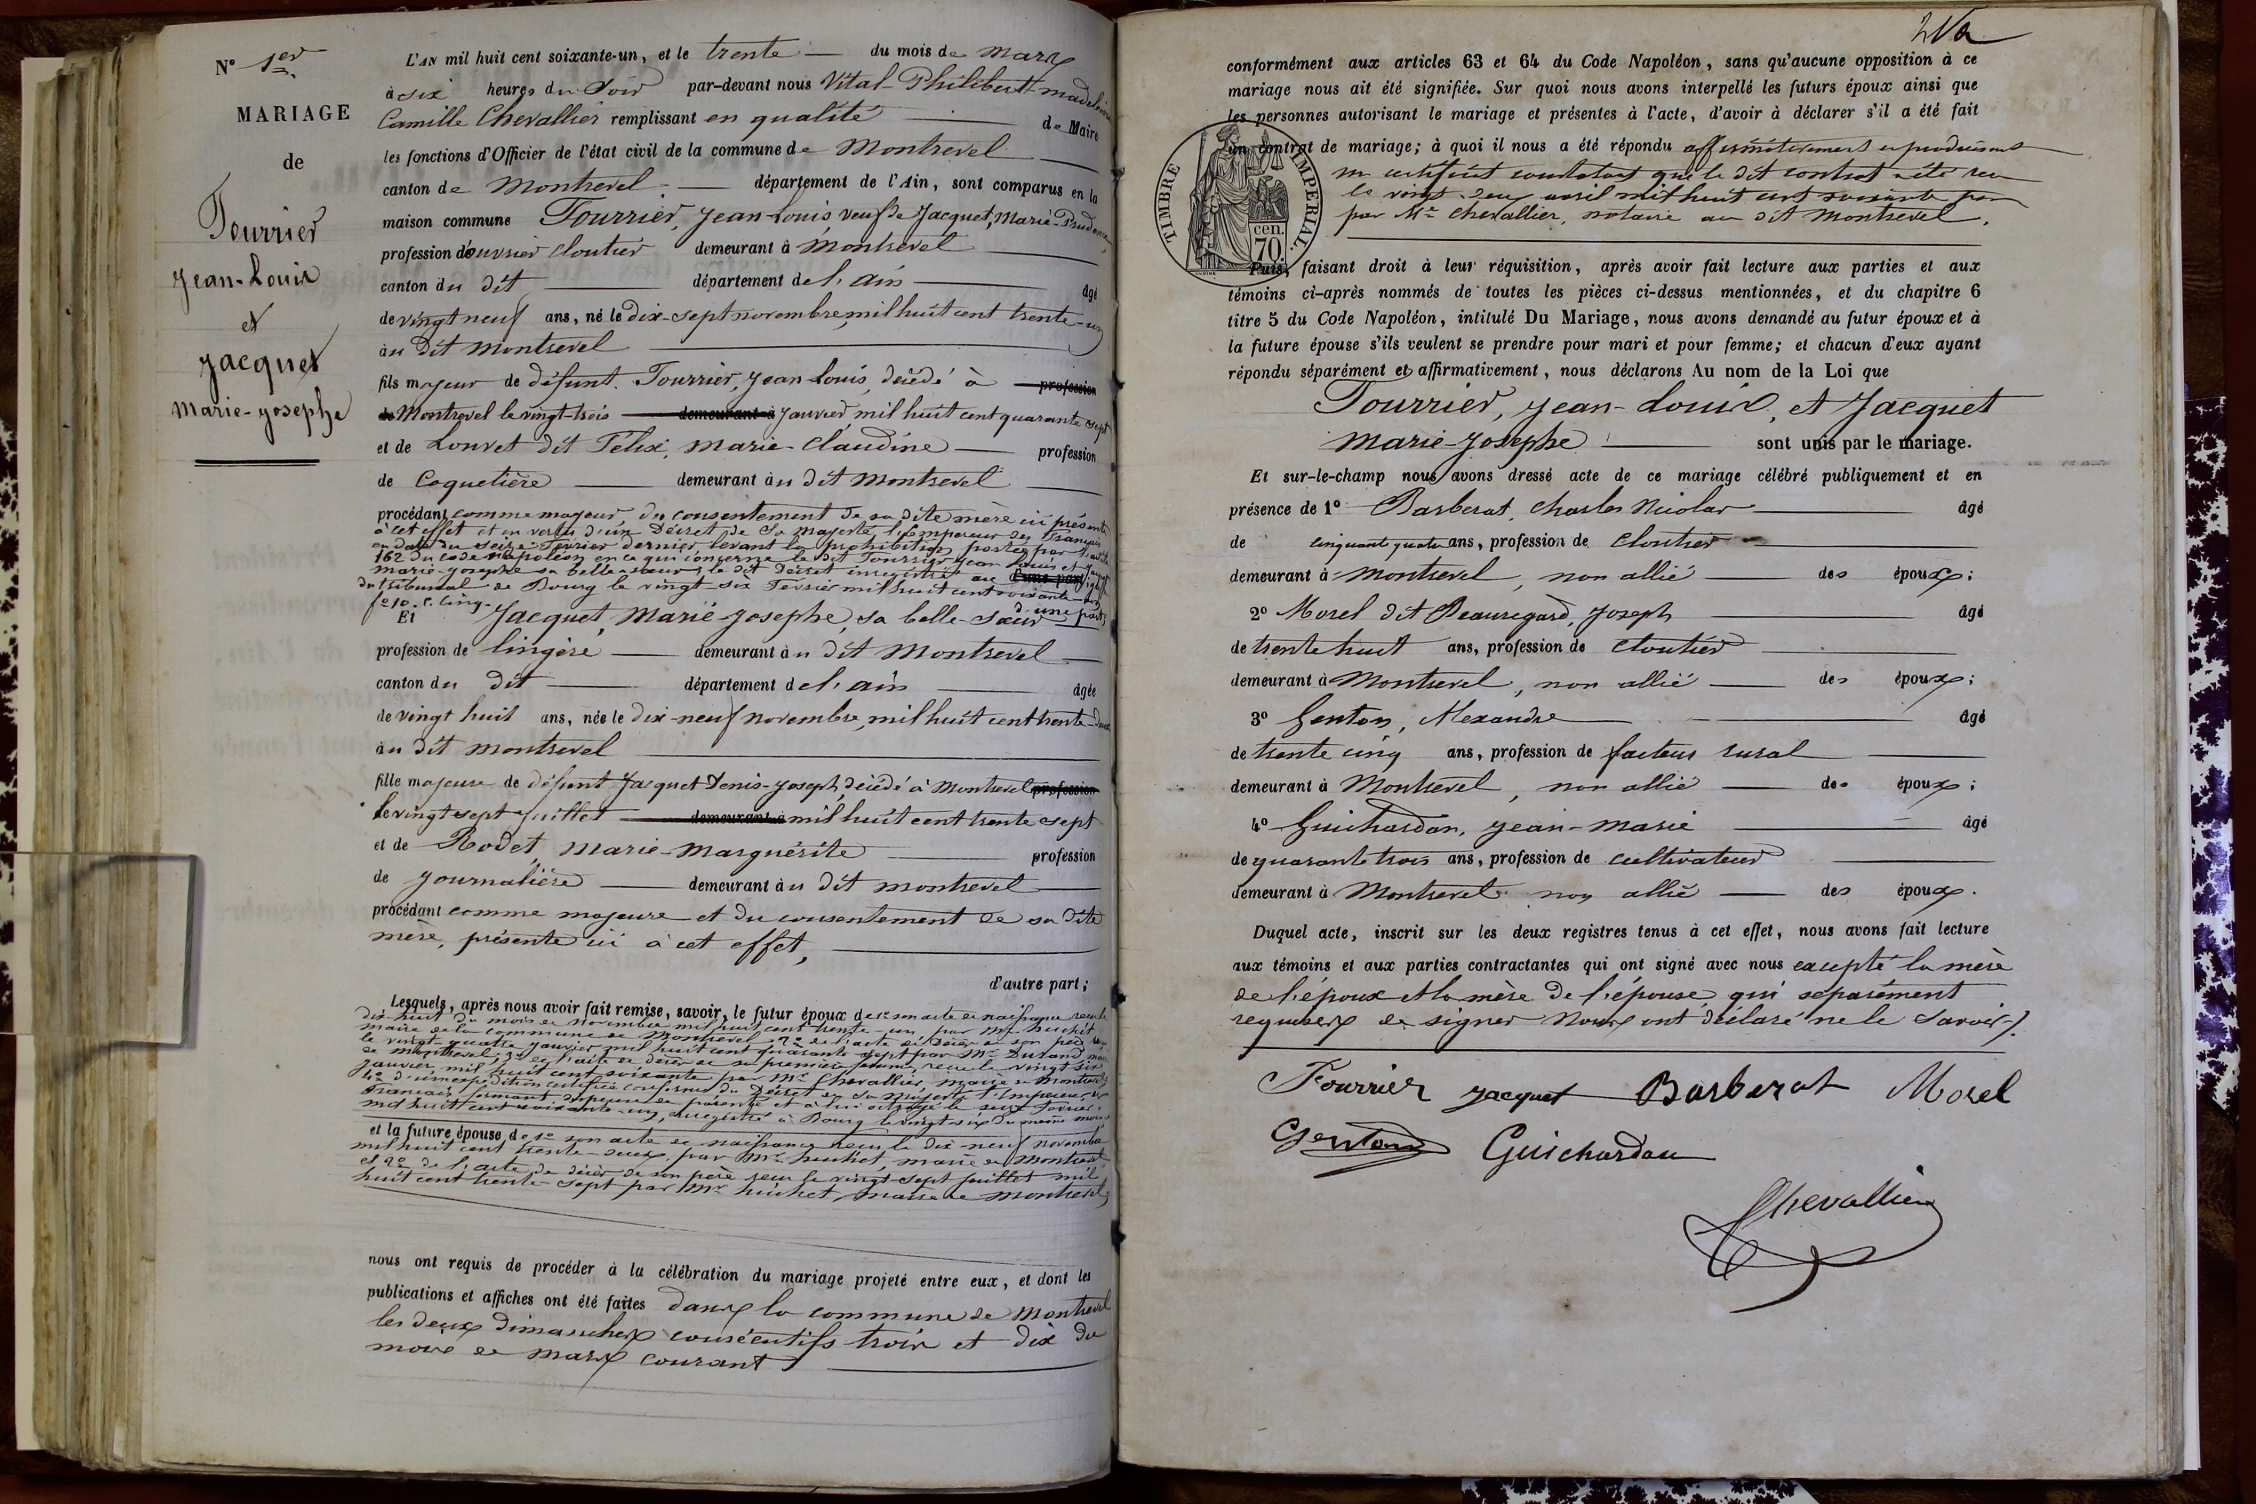 N° 1er
MARIAGE
de
Fourrier
Jean-Louis
et
Jacquet
Marie-Josephe
L'AN mil huit cent soixante-un, et le trente du mois de Mars
à six heures du soir par-devant nous Vital-Philibert-Madeleine
Camille Chevallier remplissant en qualité de Maire
les fonctions d'Officier de l'état civil de la commune de Montrevel
canton de Montrevel département de l'Ain, sont comparus en la
maison commune Fourrier, Jean-Louis, veuf de Jacquet, Marie-Prudence
profession d'ouvrier cloutier demeurant à Montrevel
canton du dit département de l'ain âgé
de vingt neuf ans, né le dix-sept novembre mil huit cent trente-un
au dit Montrevel
fils majeur de défunt Fourrier, Jean Louis, décédé à profession
de Montrevel le vingt-trois demeurant à Janvier mil huit cent quarante sept
et de Louvet dit Félix, Marie-Claudine profession
de Coquetière demeurant au dit Montrevel
procédant comme majeur du consentement de sa dite mère ici présente
à cet effet et en vertu d'un Décret de Sa Majesté l'Empereur des Français
en date du seize Février dernier, levant la prohibition portée par l'article
162 du code Napoléon en ce qui concerne le dit Fourrier Jean Louis et Jacquet
Marie-Josephe sa belle-soeur, le dit Décret enregistré au greffe
du tribunal de Bourg le vingt-six Février mil huit cent soixante-un
f° 10. c. cinq. d'une part;
Et Jacquet, Marie-Josephe, sa belle-soeur
profession de lingère demeurant au dit Montrevel
canton du dit département de l'ain âgée
de vingt huit ans, née le dix-neuf novembre mil huit cent trente-deux
au dit Montrevel
fille majeure de défunt Jacquet Denis-Joseph, décédé à Montrevel profession
le vingt sept Juillet demeurant à mil huit cent trente sept
et de Rodet, Marie-Marguérite profession
de Journalière demeurant au dit Montrevel
procédant comme majeure et du consentement de sa dite
mère, présente ici à cet effet,
d'autre part;
Lesquels, après nous avoir fait remise, savoir, le futur époux de 1° son acte de naissance reçu le
dix-huit du mois de Novembre mil huit cent trente-un par Mr huchet
maire de la commune de Montrevel, 2° de l'acte de décès de son père reçu
le vingt-quatre Janvier mil huit cent quarante sept par Mr Durand maire
de Montrevel; 3° de l'acte de décès de sa première femme, reçu le vingt six
Janvier mil huit cent soixante par Mr Chevallier, maire de Montrevel,
4° d'une expédition certifiée conforme du Décret de Sa Majesté l'Empereur des
Français portant dispense de parenté et à lui octroyé le seize Février
mil huit cent soixante-un, enregistré à Bourg le vingt-six du même mois
et la future épouse, de 1° son acte de naissance reçu le dix-neuf novembre
mil huit cent trente-deux, par Mr huchet, maire de Montrevel
et 2° de l'acte de décès de son père reçu le vingt-sept Juillet mil
huit cent trente-sept par Mr huchet, maire de Montrevel,
nous ont requis de procéder à la célébration du mariage projeté entre eux, et dont les
publications et affiches ont été faites dans la commune de Montrevel
les deux dimanches consécutifs trois et dix du
mois de mars courant
conformément aux articles 63 et 64 du Code Napoléon, sans qu'aucune opposition à ce
mariage nous ait été signifiée. Sur quoi nous avons interpellé les futurs époux ainsi que
les personnes autorisant le mariage et présentes à l'acte, d'avoir à déclarer s'il a été fait
un contrat de mariage; à quoi il nous a été répondu affirmativement en produisant
un certificat constatant que le dit contrat a été reçu
le vingt-deux avril mil huit cent soixante
par Mr Chevallier, notaire au dit Montrevel.
TIMBRE IMPERIAL.
cen.
70
Puis, faisant droit à leur réquisition, après avoir fait lecture aux parties et aux
témoins ci-après nommés de toutes les pièces ci-dessus mentionnées, et du chapitre 6
titre 5 du Code Napoléon, intitulé Du Mariage, nous avons demandé au futur époux et à
la future épouse s'ils veulent se prendre pour mari et pour femme; et chacun d'eux ayant
répondu séparément et affirmativement, nous déclarons Au nom de la Loi que
Fourrier, Jean-Louis, et Jacquet
Marie-Josephe sont unis par le mariage.
Et sur-le-champ nous avons dressé acte de ce mariage célébré publiquement et en
présence de 1° Barberat, Charles Nicolas âgé
de cinquante quatre ans, profession de Cloutier
demeurant à Montrevel, non allié des époux;
2° Morel dit Beauregard, Joseph âgé
de trente huit ans, profession de Cloutier
demeurant à Montrevel, non allié des époux;
3° Genton, Alexandre âgé
de trente cinq ans, profession de facteur rural
demeurant à Montrevel, non allié des époux;
4° Guichardon, Jean-Marie âgé
de quarante trois ans, profession de cultivateur
demeurant à Montrevel non allié des époux.
Duquel acte, inscrit sur les deux registres tenus à cet effet, nous avons fait lecture
aux témoins et aux parties contractantes qui ont signé avec nous excepté la mère
de l'époux et la mère de l'épouse qui séparément
requises de signer nous ont déclaré ne le savoir.
Fourrier Jacquet Barberat Morel
Genton Guichardon
Chevallier